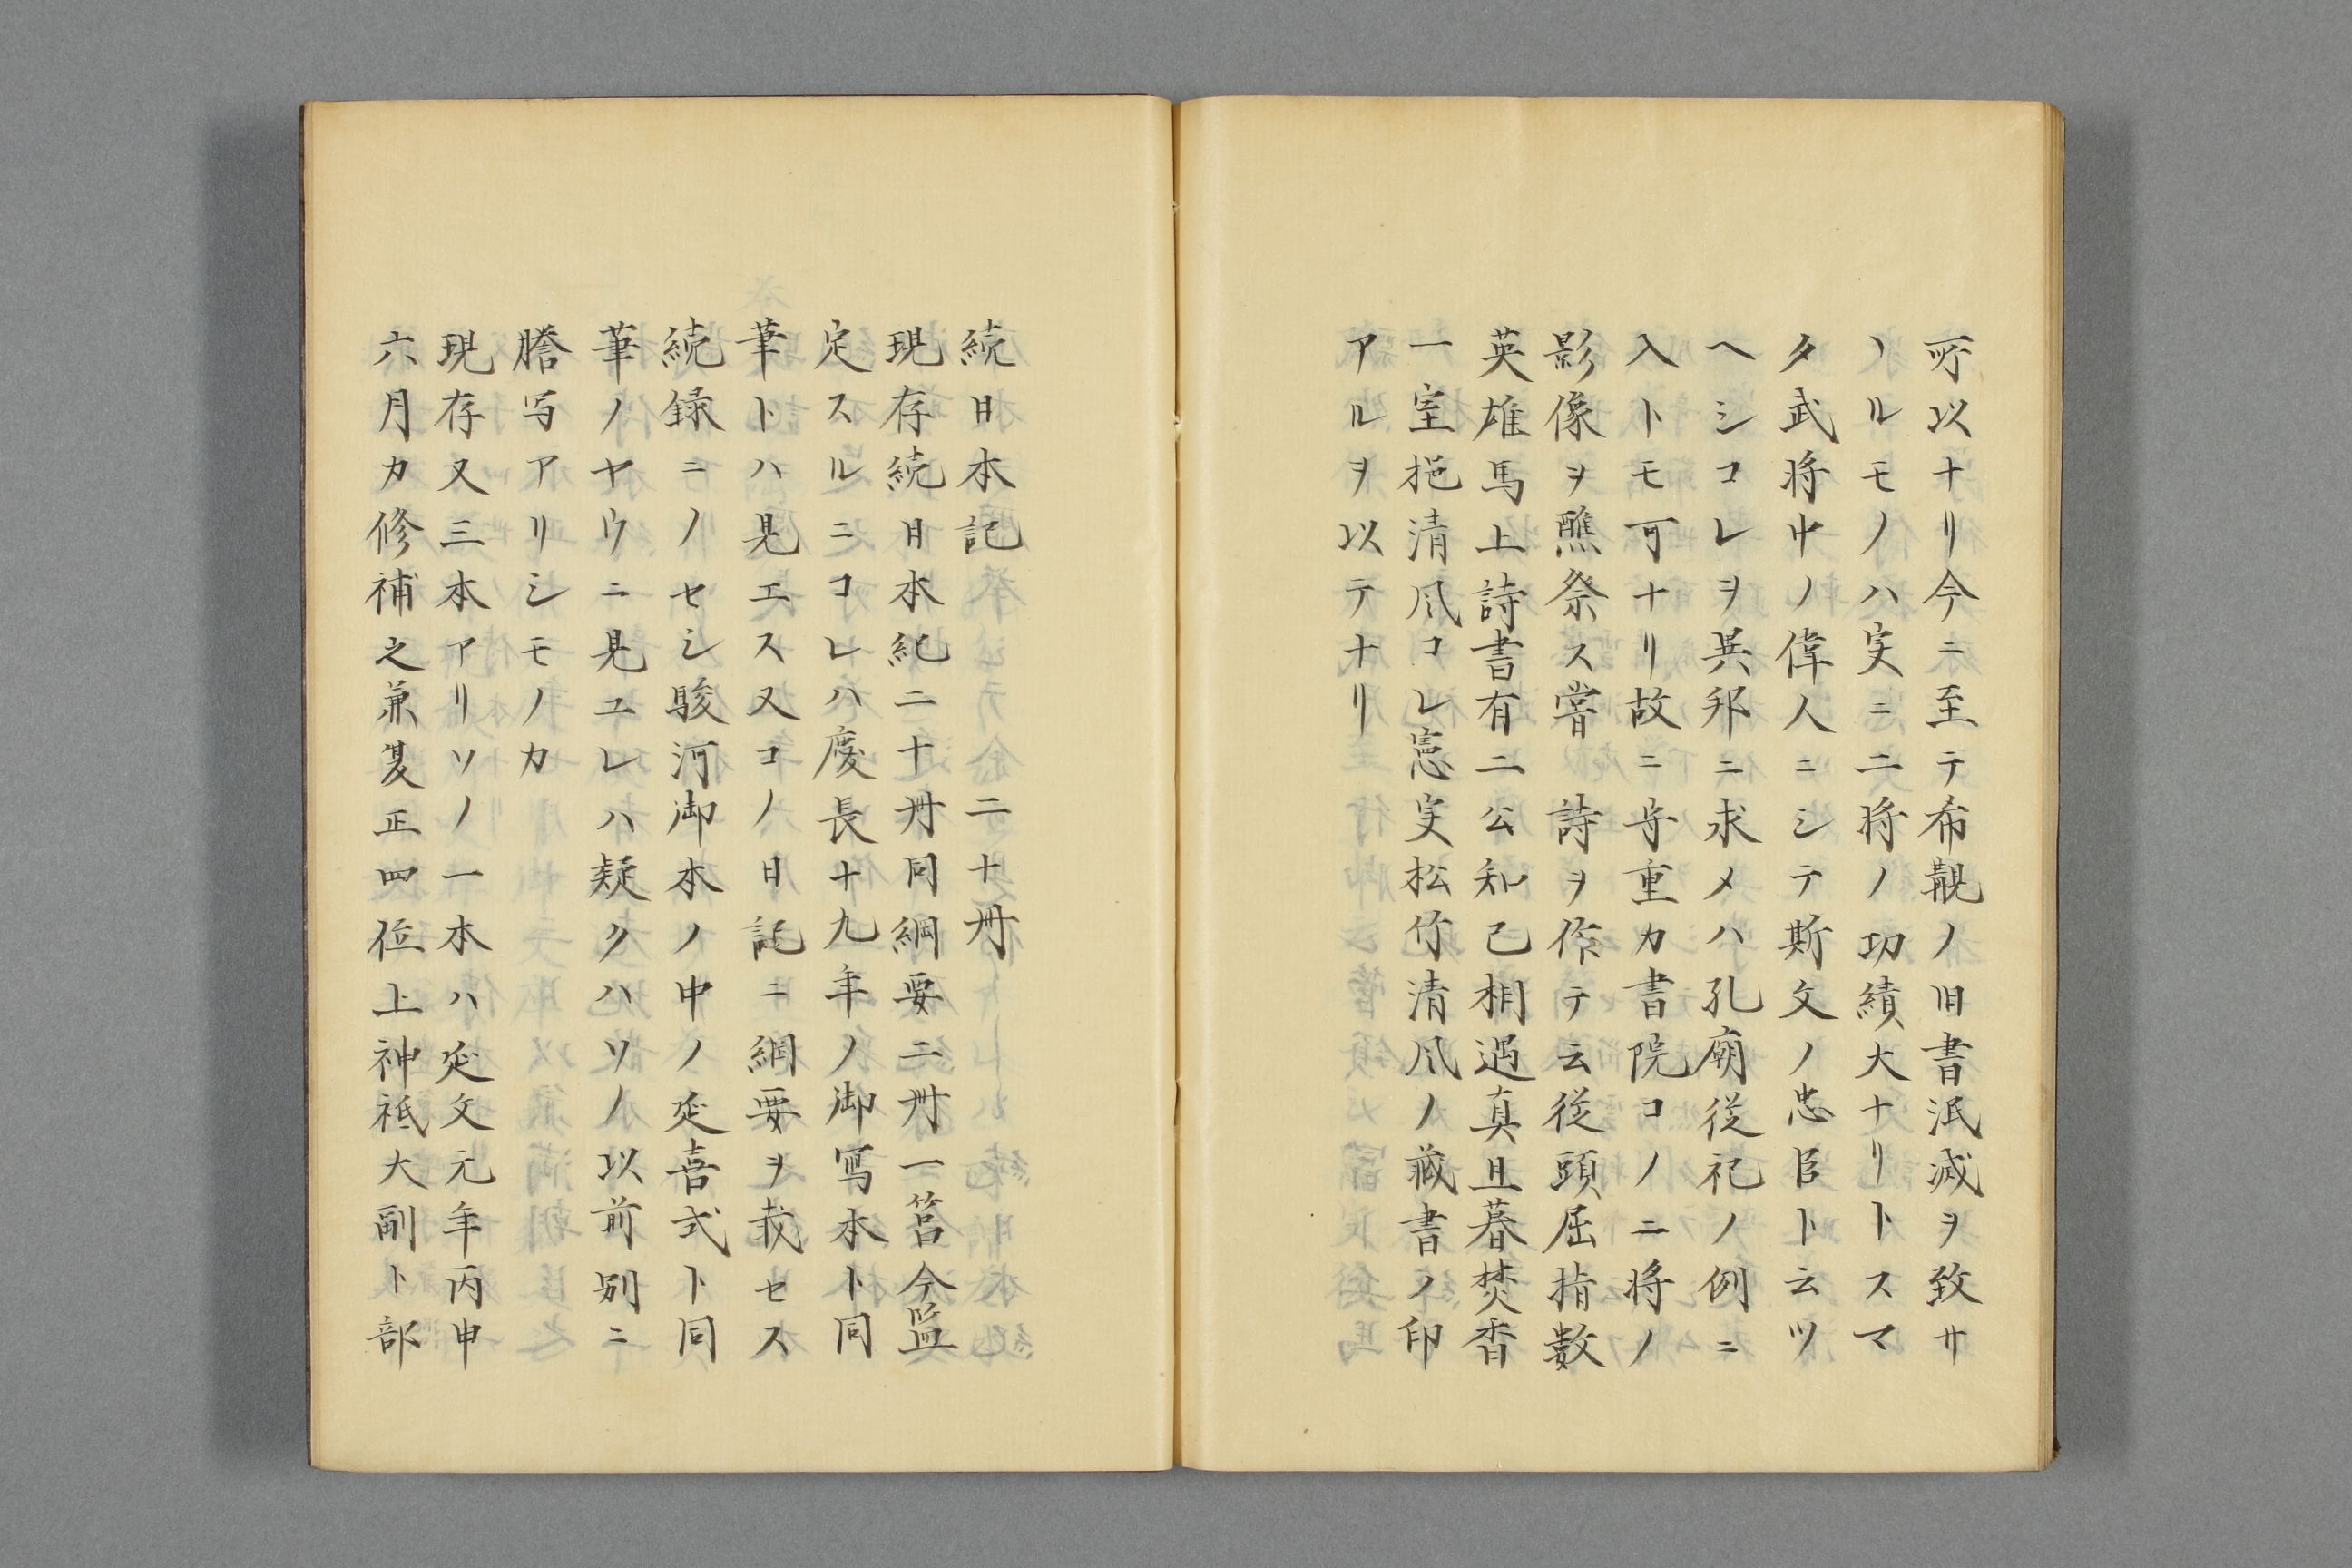 所以ナリ今ニ至テ希覯ノ旧書泯滅ヲ致サ
ヽルモノハ実ニ二将ノ功績大ナリトスマ
タ武将中ノ偉人ニシテ斯文ノ忠臣ト云ツ
ヘシコレヲ異邦ニ求メハ孔廟従祀ノ例ニ
入トモ可ナリ故ニ守重カ書院コノ二将ノ
影像ヲ醮祭ス嘗詩ヲ作テ云従頭屈指数
英雄馬上詩書有二公知己相遇真旦暮焚香
一室挹清凨コレ憲実松竹清凨ノ蔵書ノ印
アルヲ以テナリ
続日本記　二十冊
現存続日本紀二十冊同綱要二冊一筥今監
定スルニコレハ慶長十九年ノ御写本ト同
筆トハ見エス又コノ日記ニ綱要ヲ載セス
続録ニノセシ駿河御本ノ中ノ延喜式ト同
筆ノヤウニ見ユレハ疑クハソノ以前別ニ
謄写アリシモノカ
現存又三本アリソノ一本ハ延文元年丙申
六月カ修補之兼夏正四位上神祇大副卜部